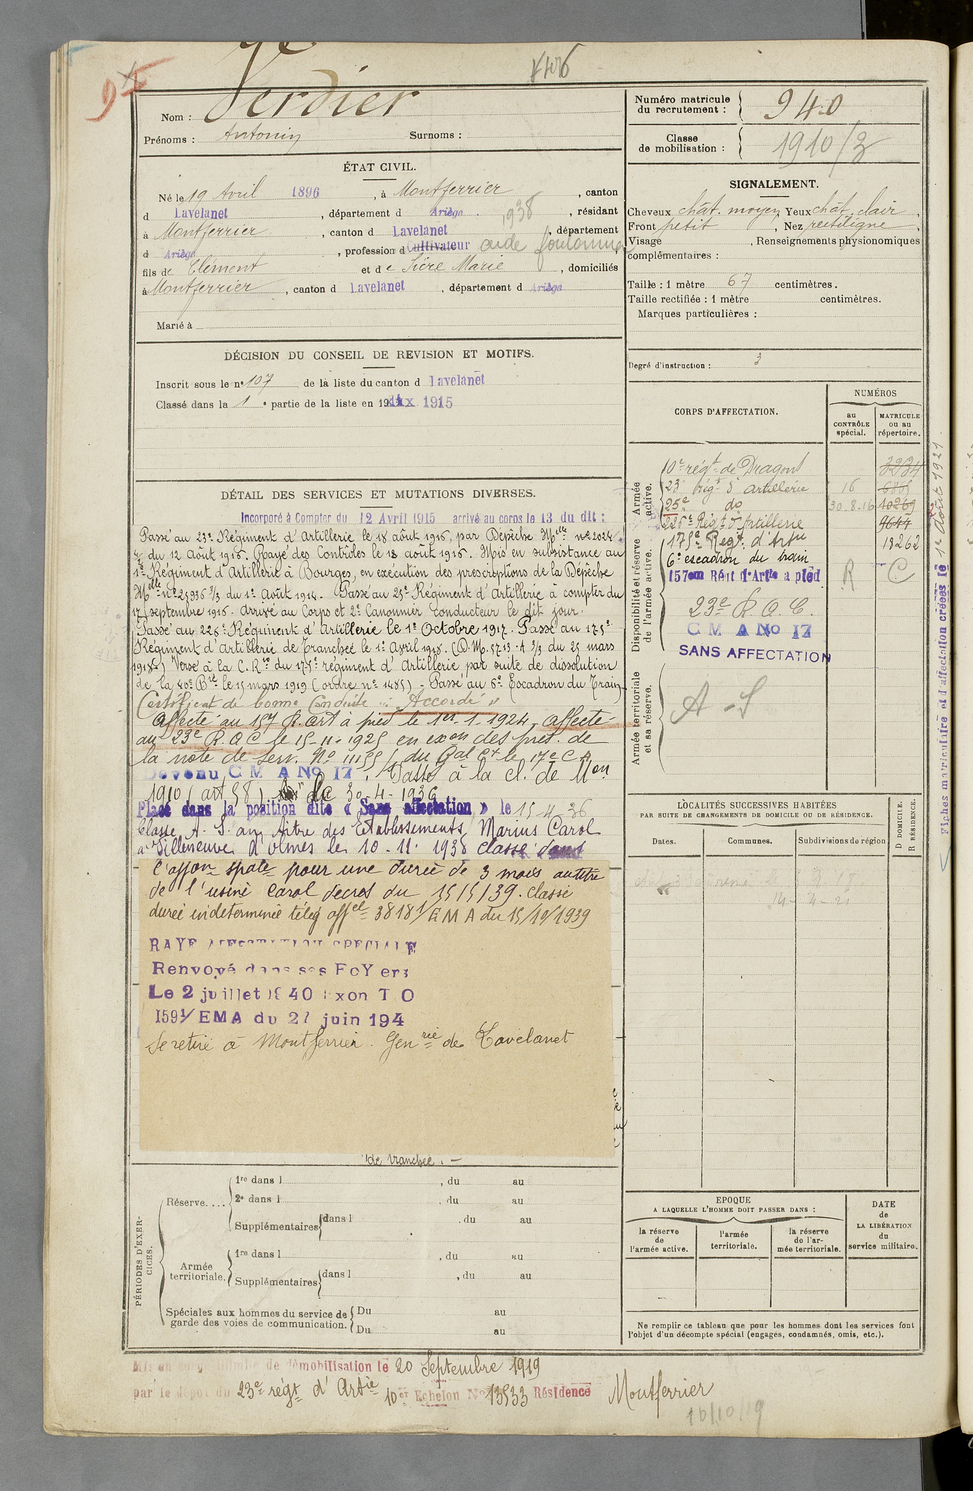 95
1406
Nom : Verdier
Prénoms : Antonin Surnoms :
ÉTAT CIVIL.
Né le 19 Avril 1896, à Montferrier, canton
d Lavelanet, département d Ariège. 1938, résidant
à Montferrier, canton d Lavelanet, département
d Ariège, profession d Cultivateur aide fouleur
fils de Clément et de Sicre Marie, domiciliés
à Montferrier, canton d Lavelanet, département d Ariège
Marié à
DÉCISION DU CONSEIL DE REVISION ET MOTIFS.
Inscrit sous le n° 107 de la liste du canton d Lavelanet
Classé dans la 1e partie de la liste en 1915
DÉTAIL DES SERVICES ET MUTATIONS DIVERSES.
Incorporé à Compter du 12 Avril 1915 arrivé au corps le 13 du dit :
Passé au 23e Régiment d'Artillerie le 18 août 1916, par Dépêche Melle n° 22024
du 12 Août 1916. Rayé des Contrôles le 18 août 1916. Mis en subsistance au
1er Régiment d'Artillerie à Bourges, en exécution des prescriptions de la Dépêche
Melle n° 25936 2/3 du 1er Août 1916. Passé au 25e Régiment d'Artillerie à compter du
17 septembre 1916. Arrivé au Corps et 2e Canonnier Conducteur le dit jour.
Passé au 225e Régiment d'Artillerie le 1er Octobre 1917. Passé au 175e
Régiment d'Artillerie de tranchée le 1er Avril 1918. (D.M. 5713 A 2/3 du 25 mars
1918) Versé à la C.R. du 175e régiment d'Artillerie par suite de dissolution
de la 40e Bie le 15 mars 1919 (ordre n° 1485) - Passé au 6e Escadron du Train
Certificat de bonne Conduite " Accordé "
Affecté au 157 R. art à pied le 1er. 1. 1924, affecté
au 23e R.A.C le 15-11-1925 en exon des pres. de
la note de serv. No 11155/ du Gal Ct le 17e C.A
Devenu C M A No 17. Passé à la cl. de Mon
1910 (art 58) le 30-4-1936
Placé dans la position dite « Sans affectation » le 15.4.36
Classé A.S. au titre des Etablissements Marius Carol
à Villeneuve d'Olmes les 10.11.1938 classé dans
l'affon spale pour une durée de 3 mois au titre
de l'usine Carol decros du 15/5/39. Classé
durée indéterminée télég offel 38181/EMA du 15/10/1939
RAYE AFFECTATION SPECIALE
Renvoyé dans ses FoYers
Le 2 juillet 1940 Exon T O
1591/EMA du 27 juin 194
Se retire à Montferrier. Genrie de Lavelanet
de tranchée. -
PÉRIODES D'EXERCICES.
Réserve.... 1re dans l , du au
2e dans l , du au
Supplémentaires dans l , du au
Armée territoriale. 1re dans l , du au
Supplémentaires dans l , du au
Spéciales aux hommes du service de garde des voies de communication. Du au
Du au
Mis en congé illimité de démobilisation le 20 Septembre 1919
par le dépôt du 23e régt d'Artie 10e Echelon No 13533 Résidence Montferrier
16/10/19
Numéro matricule du recrutement : 940
Classe de mobilisation : 1910/3
SIGNALEMENT.
Cheveux chât. moyen Yeux chât. clair,
Front petit, Nez rectiligne,
Visage , Renseignements physionomiques
complémentaires :
Taille : 1 mètre 67 centimètres.
Taille rectifiée : 1 mètre centimètres.
Marques particulières :
Degré d'instruction : 3
CORPS D'AFFECTATION.
NUMÉROS
au CONTRÔLE spécial.
MATRICULE OU AU répertoire.
Armée active.
10e régt de Dragons
23e régt d'artillerie 16
25e do 30.8.16 10269
225e Régt d'Artillerie 9644
175e Regt d'Artie 13262
6e escadron du train
Disponibilité et réserve de l'armée active.
157em Régt d'Artie a pied R C
23e R.A.C.
C M A No 17
SANS AFFECTATION
Armée territoriale et sa réserve.
A - S
LOCALITÉS SUCCESSIVES HABITÉES
PAR SUITE DE CHANGEMENTS DE DOMICILE OU DE RÉSIDENCE.
Dates. Communes. Subdivisions de région
D DOMICILE. R RÉSIDENCE.
EPOQUE
A LAQUELLE L'HOMME DOIT PASSER DANS :
DATE de LA LIBÉRATION du service militaire.
la réserve de l'armée active.
l'armée territoriale.
la réserve de l'armée territoriale.
Ne remplir ce tableau que pour les hommes dont les services font
l'objet d'un décompte spécial (engagés, condamnés, omis, etc.).
Fiches matriculaire et d'affectation créées le 1er Août 1927.